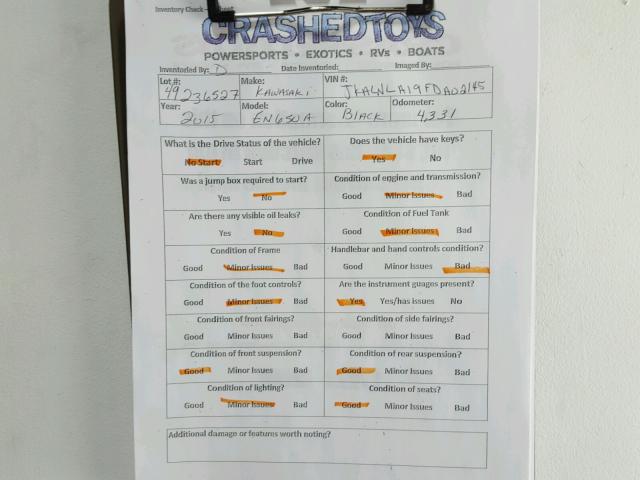 Inventory Check -
CRASHEDTOYS
POWERSPORTS • EXOTICS • RVs • BOATS
Inventoried By: D Date Inventoried: Imaged By:
Lot #: Make: VIN #:
49236527 KAWASAKI JKAENLA19FDA02145
Year: Model: Color: Odometer:
2015 EN650A BLACK 4,331
What is the Drive Status of the vehicle? Does the vehicle have keys?
No Start Start Drive Yes No
Was a jump box required to start? Condition of engine and transmission?
Yes No Good Minor Issues Bad
Are there any visible oil leaks? Condition of Fuel Tank
Yes No Good Minor Issues Bad
Condition of Frame Handlebar and hand controls condition?
Good Minor Issues Bad Good Minor Issues Bad
Condition of the foot controls? Are the instrument guages present?
Good Minor Issues Bad Yes Yes/has issues No
Condition of front fairings? Condition of side fairings?
Good Minor Issues Bad Good Minor Issues Bad
Condition of front suspension? Condition of rear suspension?
Good Minor Issues Bad Good Minor Issues Bad
Condition of lighting? Condition of seats?
Good Minor Issues Bad Good Minor Issues Bad
Additional damage or features worth noting?